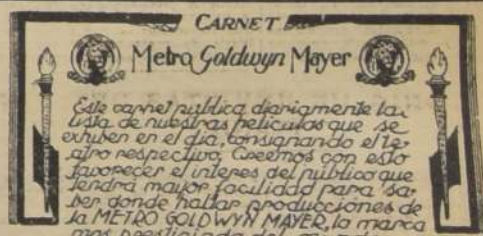 CARNET
Metro Goldwyn Mayer
Este carnet publica diariamente la
lista de nuestras peliculas que se
exhiben en el dia, consignando el te-
atro respectivo. Creemos con esto
favorecer el interes del publico que
tendrá mayor facilidad para sa-
ber donde hallar producciones de
la METRO GOLDWYN MAYER, la marca
mas prestigiada del